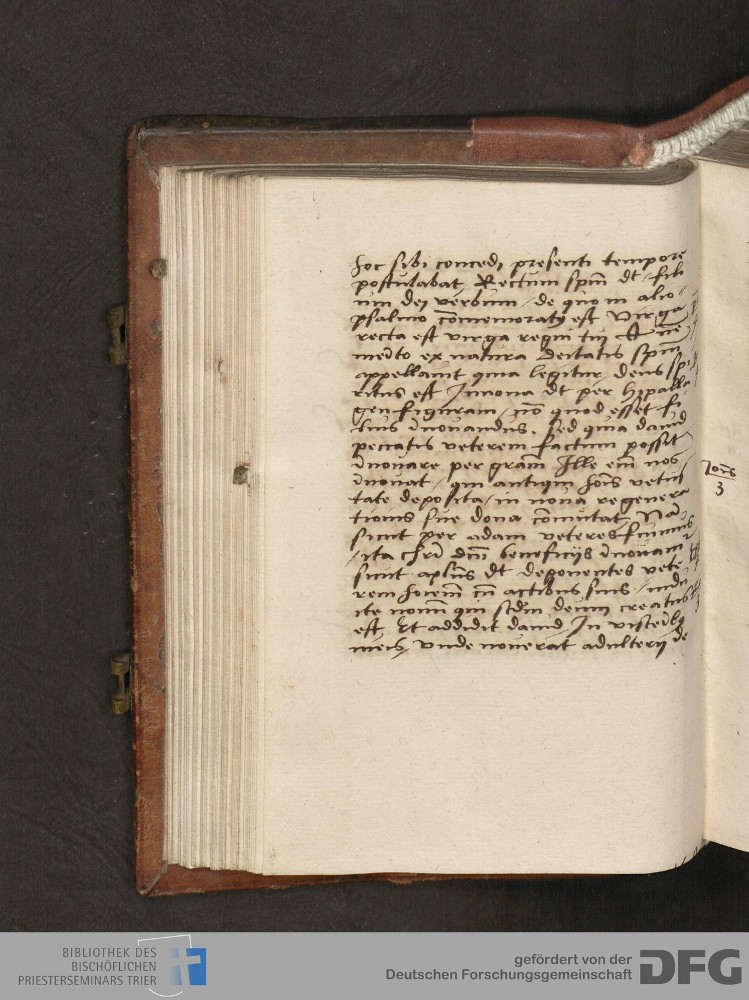 hoc sibi concedi presenti tempore
postulabat Rectum spm̄ dt / fili
um dej verbum / de quo in alio
psalmo cōmemoratꝫ est Virga
recta est virga regni tuj
merito ex natura deitatis spm̄
appellauit quia legitur deus spi
ritus est Innoua dt per hypalla
gen figuram / nō quod esset fi
lius īnouandus, sed quia dauid
peccatis veterem factum possit
īnouare per gram̄ Ille em̄ nos
īnouat / qui antiqui hoīs vetus
tate deposita / in noua regenera
tionis sue dona cōmutat Nā
sicut per adam veteres fuimus
/ ita chri dnī beneficijs īnouam
sicut aplūs dt deponentes vete
rem hoīem cū actibus suis / indu
ite nouū qui scdm̄ deum creatus
est Et addidit dauid In viscerībꝫ
meis vnde nouerat adulterij de
Ioīs
3
BIBLIOTHEK DES
BISCHÖFLICHEN
PRIESTERSEMINARS TRIER
gefördert von der
Deutschen Forschungsgemeinschaft
DFG